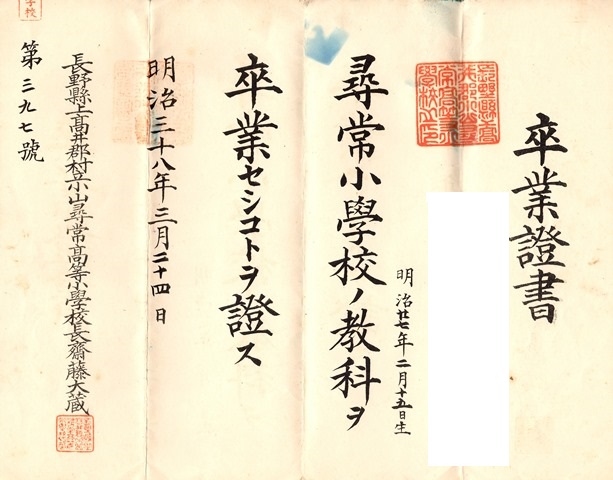 卒業證書
明治廿七年二月十五日生
尋常小學校ノ教科ヲ
卒業セシコトヲ證ス
明治三十八年三月二十四日
長野縣上高井郡村立小山尋常高等小學校長齋藤大蔵
第三九七號